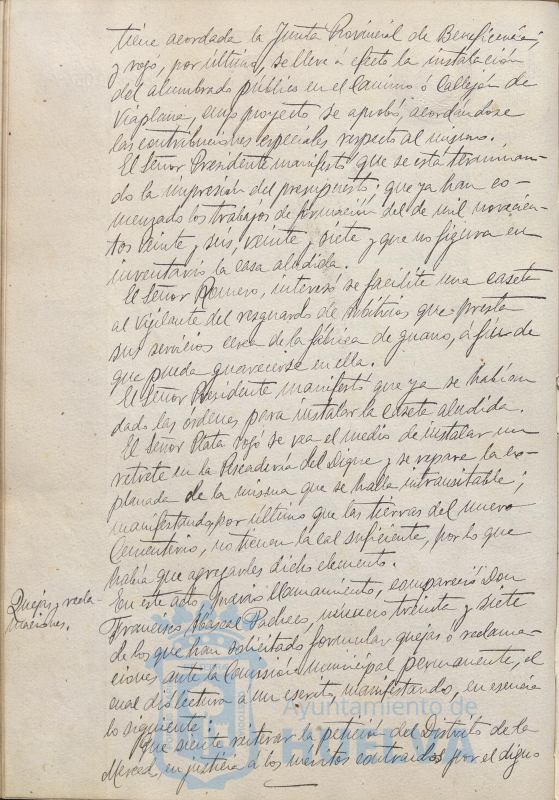 tiene acordada la Junta Provincial de Beneficencia;
y rogó, por último, se lleve á efecto la instalación
del alumbrado público en el Camino ó Callejón de
Viaplana, cuyo proyecto se aprobó, acordándose
las contribuciones especiales respecto al mismo.
El Señor Presidente manifestó que se está terminan-
do la impresión del presupuesto; que ya han co-
menzado los trabajos de formación del de mil novecien-
tos veinte y seis, veinte y siete y que no figura en
inventario la casa aludida.
El Señor Romero, interesó se facilite una caseta
al Vigilante del resguardo de arbitrios que presta
sus servicios cerca de la fábrica de guano, á fin de
que pueda guarecerse en ella.
El Señor Presidente manifestó que ya se habían
dado las órdenes para instalar la caseta aludida.
El Señor Plata rogó se vea el medio de instalar un
retrete en la Pescadería del Dique y se repare la ex-
planada de la misma que se halla intransitable;
manifestando, por último que las tierras del nuevo
Cementerio, no tienen la cal suficiente, por lo que
había que agregarles dicho elemento.
Quejas y recla-
maciones.
En este acto, previo llamamiento, compareció Don
Francisco Pacheco, número treinta y siete
de los que han solicitado formular quejas ó reclama-
ciones ante la Comisión municipal permanente, el
cual dió lectura a un escrito, manifestando, en esencia
lo siguiente:
Que siente reiterar la petición del Distrito de la
Merced, en justicia á los méritos contraidos por el digno
Ayuntamiento de
HUELVA